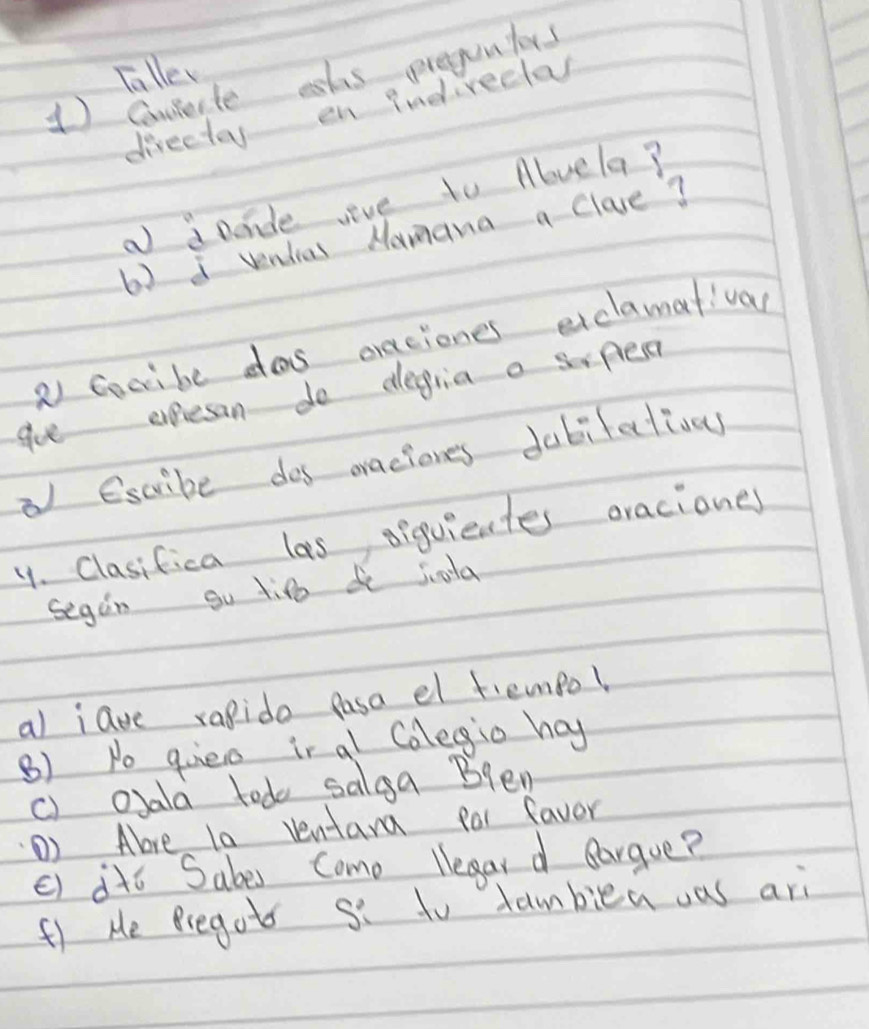 Taller
1) Convierte estas preguntas
directas en indirectas
a) ¿Donde vive tu Abuela?
b) ¿ vendras Mamana a Clase?
2) Escribe dos oraciones exclamativas
que expresan de alegria o sorpresa
3) Escribe dos oraciones dubitativas
4. Clasifica las siguientes oraciones
según su tipo de
a) ¡que rapido pasa el tiempo!
B) No quiero ir al Colegio hoy
C) Ojala todo salga Bien
D) Abre la ventana por favor
E) ¿tú Sabes Como llegar al Parque?
f) Me pregoto Si tu tambien vas